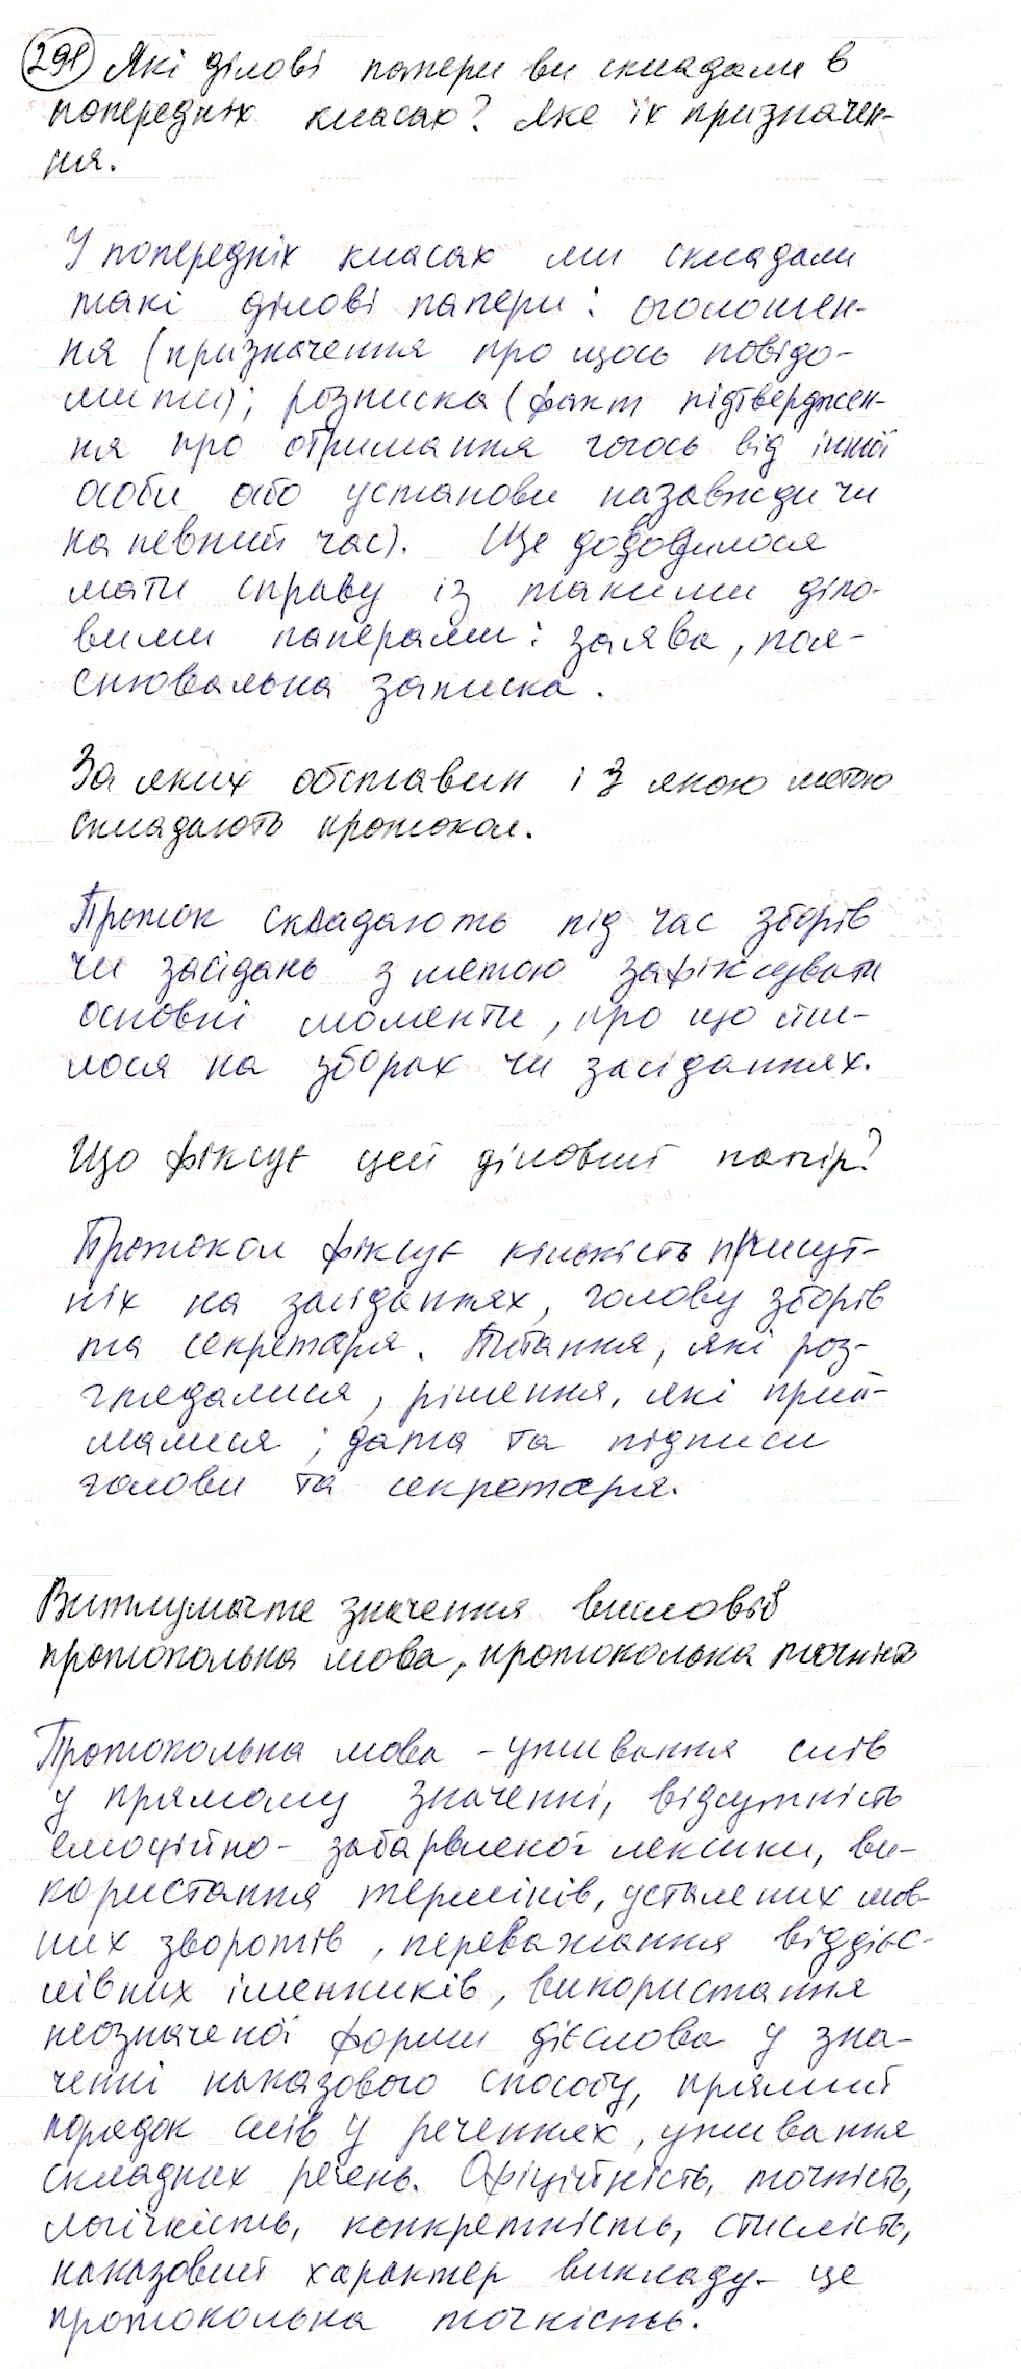 291 Які ділові папери ви складали в
попередніх класах? Яке їх призначен-
ня.
У попередніх класах ми складали
такі ділові папери: оголошен-
ня (призначення про щось повідо-
мити); розписка (факт підтверджен-
ня про отримання чогось від іншої
особи або установи назавжди чи
на певний час). Ще доводилося
мати справу із такими діло-
вими паперами: заява, поя-
снювальна записка.
За яких обставин і з якою метою
складають протокол.
Проток складають під час зборів
чи засідань з метою зафіксувати
основні моменти, про що йш-
лося на зборах чи засіданнях.
Що фіксує цей діловий папір?
Протокол фіксує кількість присут-
ніх на засіданнях, голову зборів
та секретаря. Питання, які роз-
глядалися, рішення, які прий-
малися; дата та підписи
голови та секретаря.
Витлумачте значення висловів
протокольна мова, протокольна точність
Протокольна мова - уживання слів
у прямому значенні, відсутність
емоційно-забарвленої лексики, ви-
користання термінів, усталених мов-
них зворотів, переважання віддієс-
лівних іменників, використання
неозначеної форми дієслова у зна-
ченні наказового способу, прямий
порядок слів у реченнях, уживання
складних речень. Офіційність, точність,
логічність, конкретність, стислість,
наказовий характер викладу - це
протокольна точність.